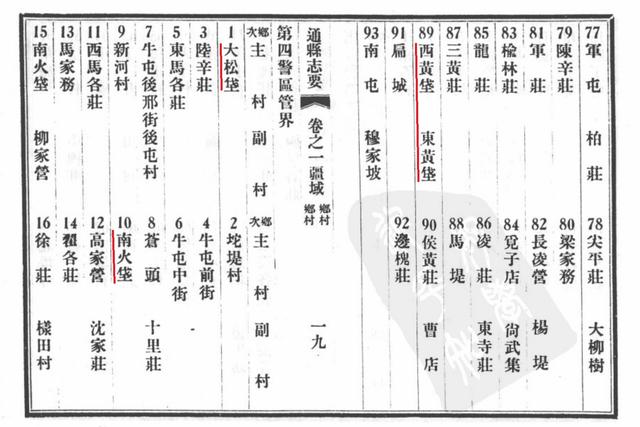 77 軍屯 柏莊 78 尖平莊 大柳樹
79 陳辛莊 80 梁家務
81 軍莊 82 長凌營 楊堤
83 楡林莊 84 覓子店 尙武集
85 龍莊 86 凌莊 東寺莊
87 三黃莊 88 馬堤
89 西黃垡 東黃垡 90 侯黃莊 曹店
91 扁城 92 邊槐莊
93 南屯 穆家坡
通縣志要 卷之一 疆域 鄉村 鄉村 一九
第四警區管界
鄉次 主村 副村 鄉次 主村 副村
1 大松垡 2 坨堤村
3 陸辛莊 4 牛屯前街
5 東馬各莊 6 牛屯中街
7 牛屯後邢街後屯村 8 蒼頭 十里莊
9 新河村 10 南火垡
11 西馬各莊 12 高家營 沈家莊
13 馬家務 14 翟各莊
15 南火垡 柳家營 16 徐莊 樣田村